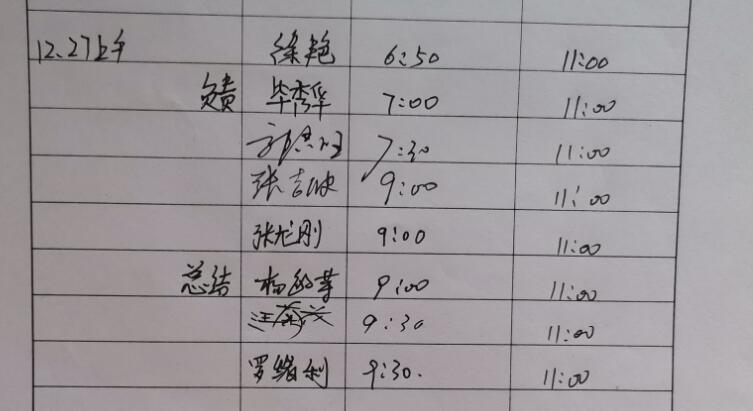 12.27上午 徐艳 6:50 11:00
负责 毕秀华 7:00 11:00
7:30 11:00
张吉 9:00 11:00
张龙刚 9:00 11:00
总结 杨 9:00 11:00
汪 9:30 11:00
罗绪利 9:30. 11:00